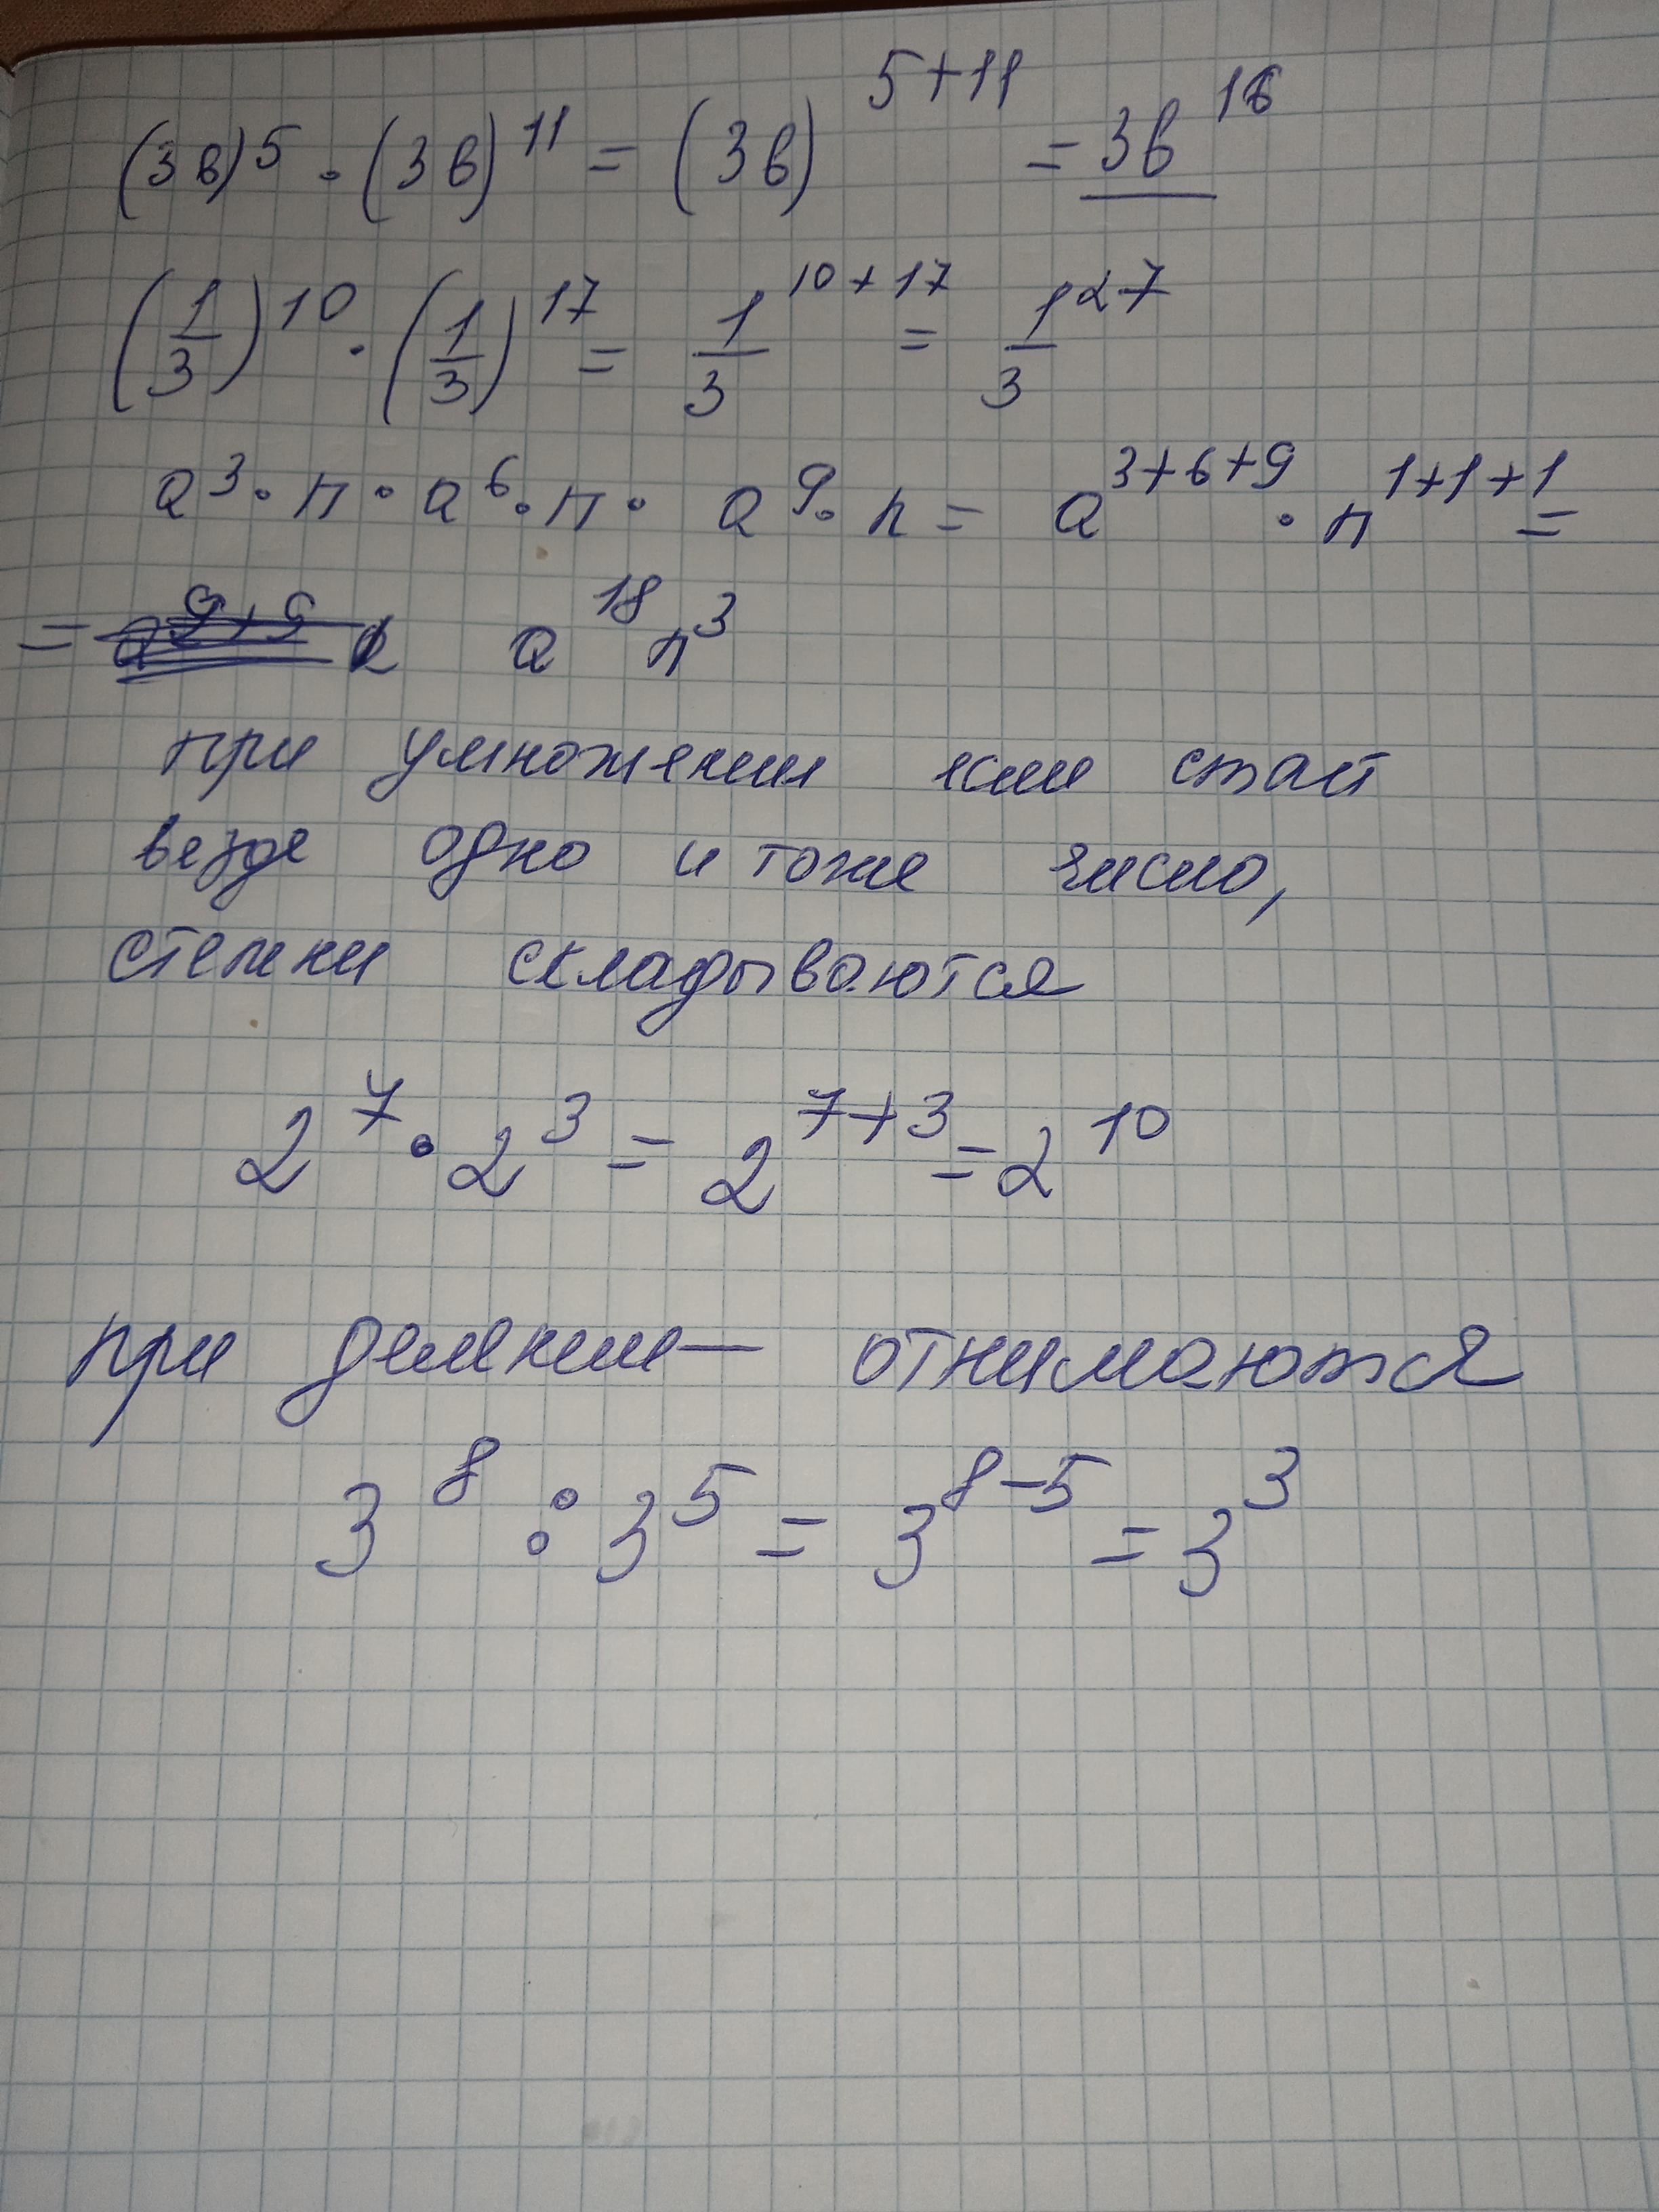 (3в)⁵ · (3в)¹¹ = (3в)⁵⁺¹¹ = 3в¹⁶
(1/3)¹⁰ · (1/3)¹⁷ = 1/3¹⁰⁺¹⁷ = 1/3²⁷
a³ · n · a⁶ · n · a⁹ · n = a³⁺⁶⁺⁹ · n¹⁺¹⁺¹ =
= a¹⁸ n³
при умножении если стоит
везде одно и тоже число,
степени складываются
2⁷ · 2³ = 2⁷⁺³ = 2¹⁰
при делении — отнимаются
3⁸ : 3⁵ = 3⁸⁻⁵ = 3³